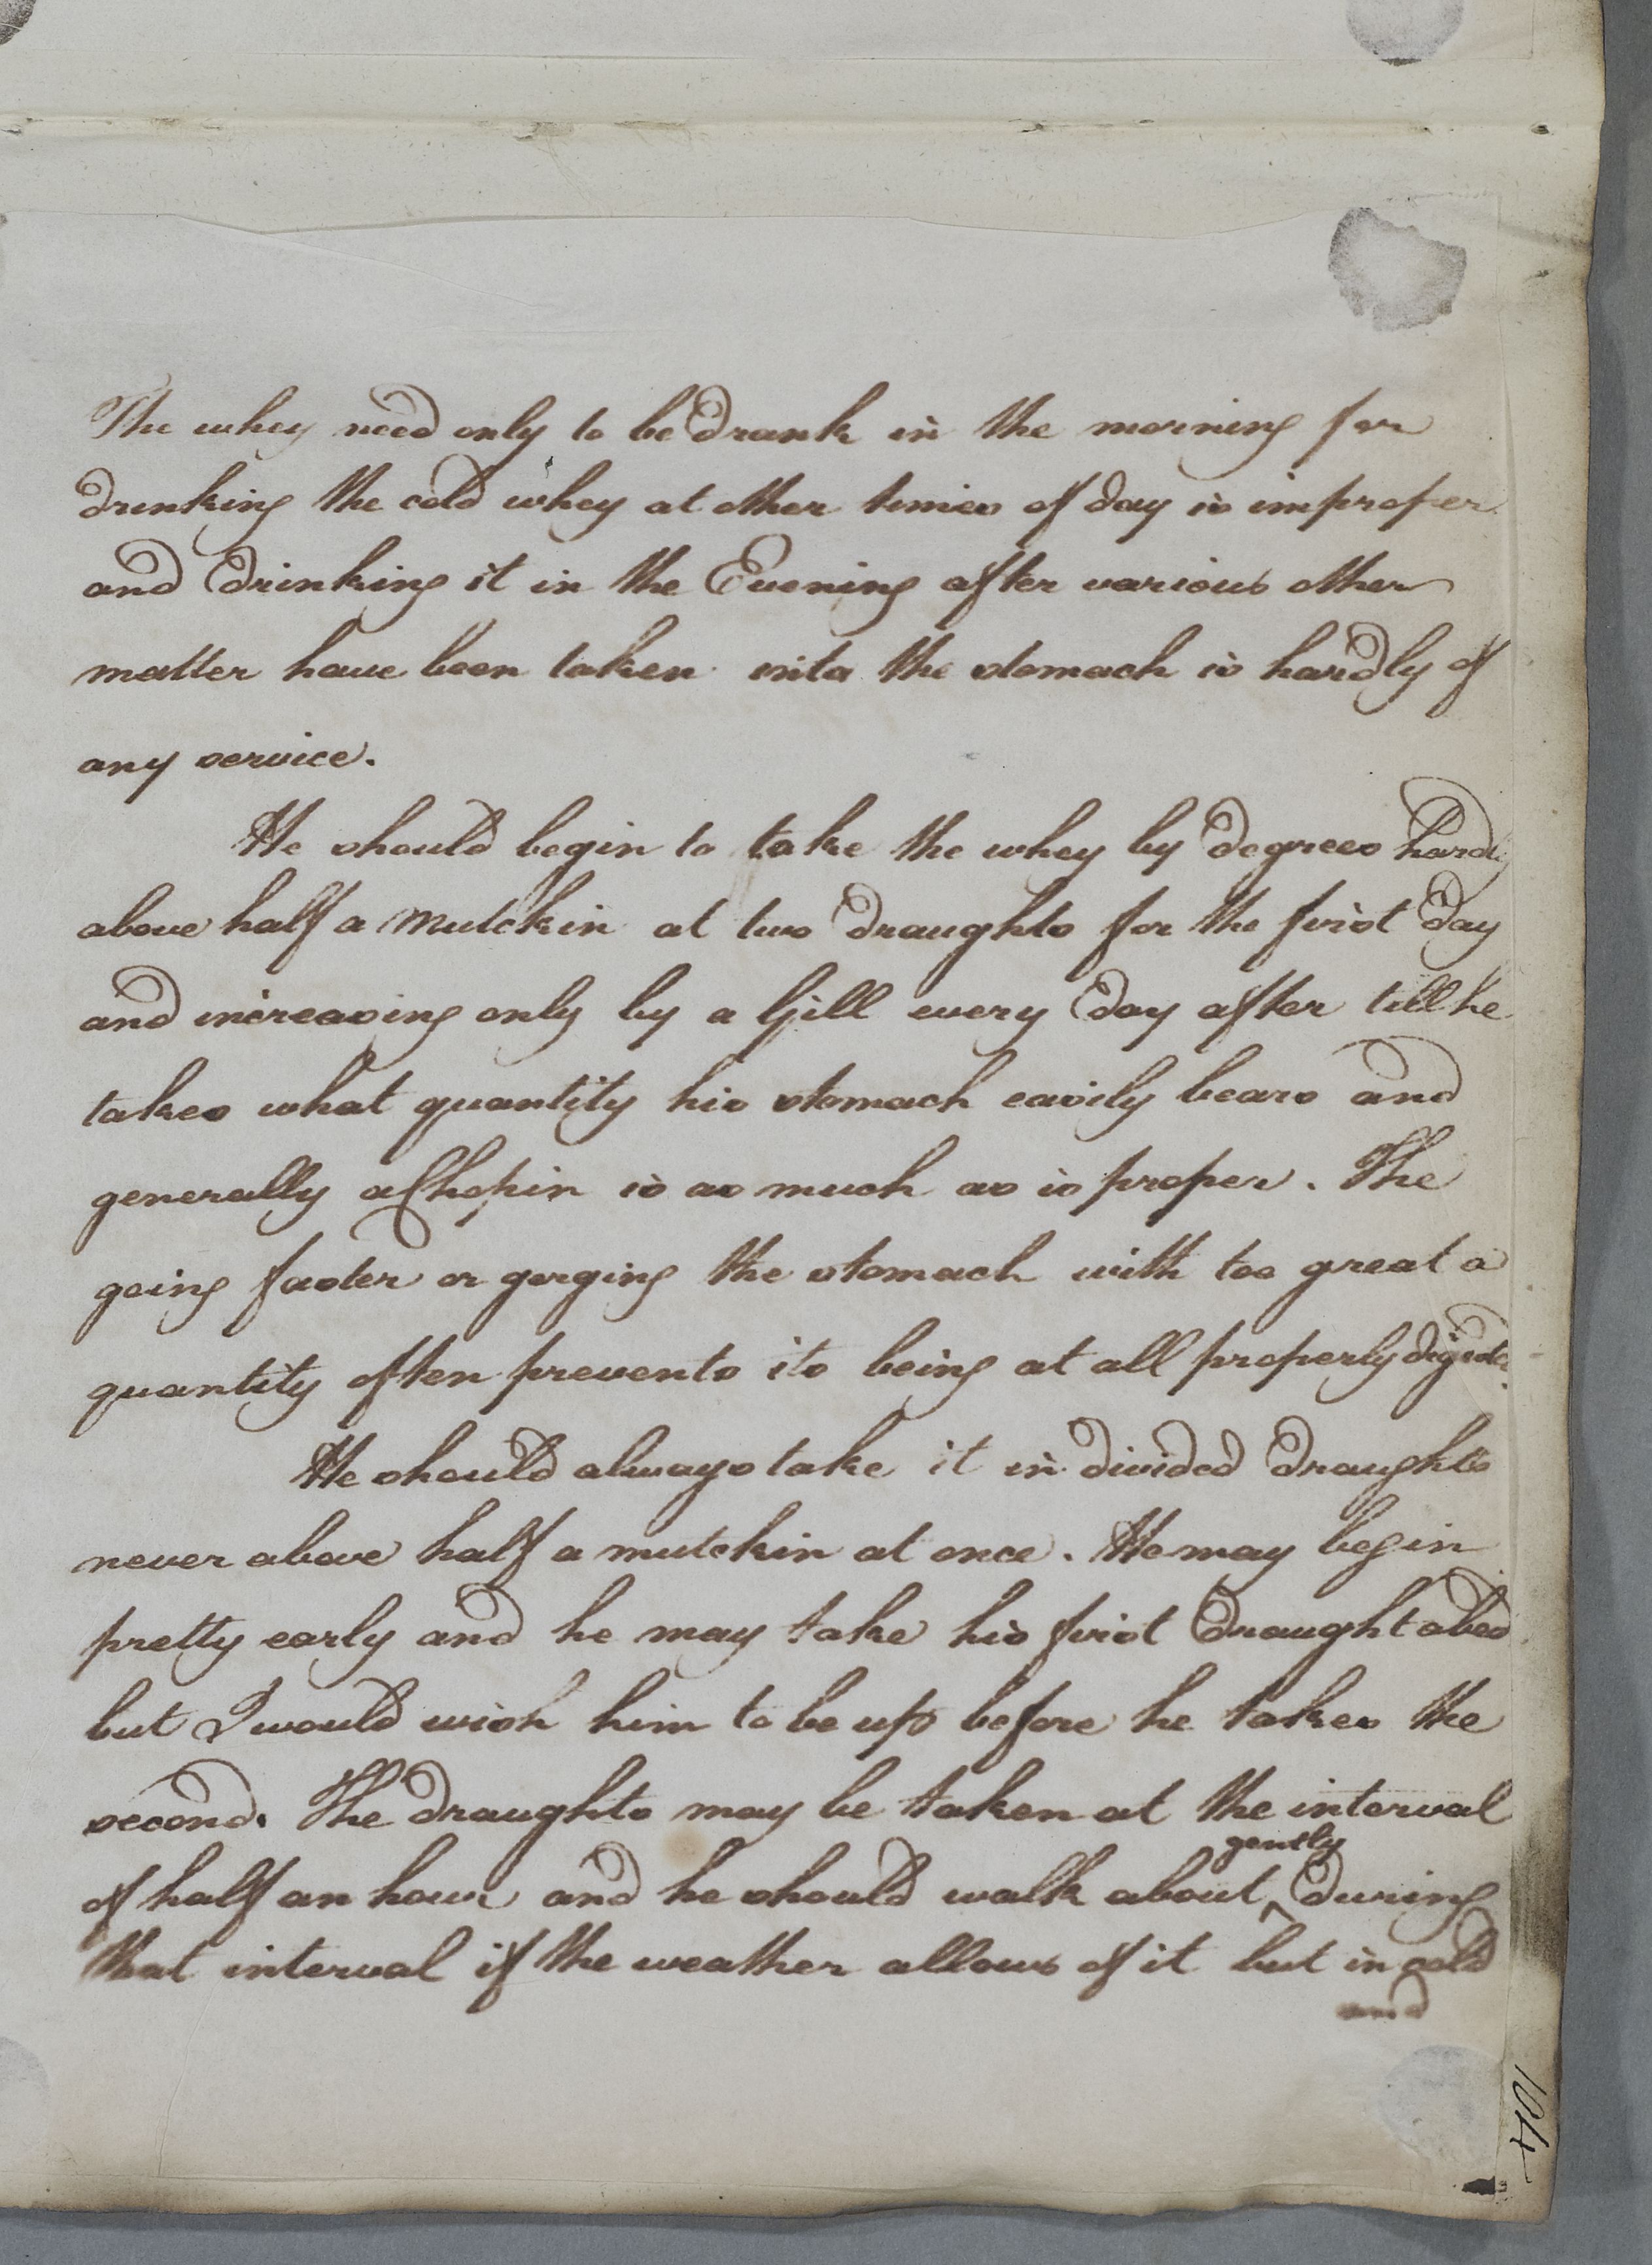 The whey need only to be drank in the morning for
drinking the cold whey at other times of day is improper
and drinking it in the Evening after various other
matter have been taken into the stomach is hardly of
any service.
He should begin to take the whey by degrees hardly
above half a Mutckin at two draughts for the first day
and increasing only by a Gill every day after till he
takes what quantity his stomach easily bears and
generally a Chopin is as much as is proper. The
going faster or gorging the stomach with too great a
quantity often prevents its being at all properly digested
He should always take it in divided draughts
never above half a mutckin at once. He may begin
pretty early and he may take his first draught abed
but I would wish him to be up before he takes the
second. The draughts may be taken at the interval
gently
of half an hour and he should walk about ^ during
that interval if the weather allows of it but in cold
and
104